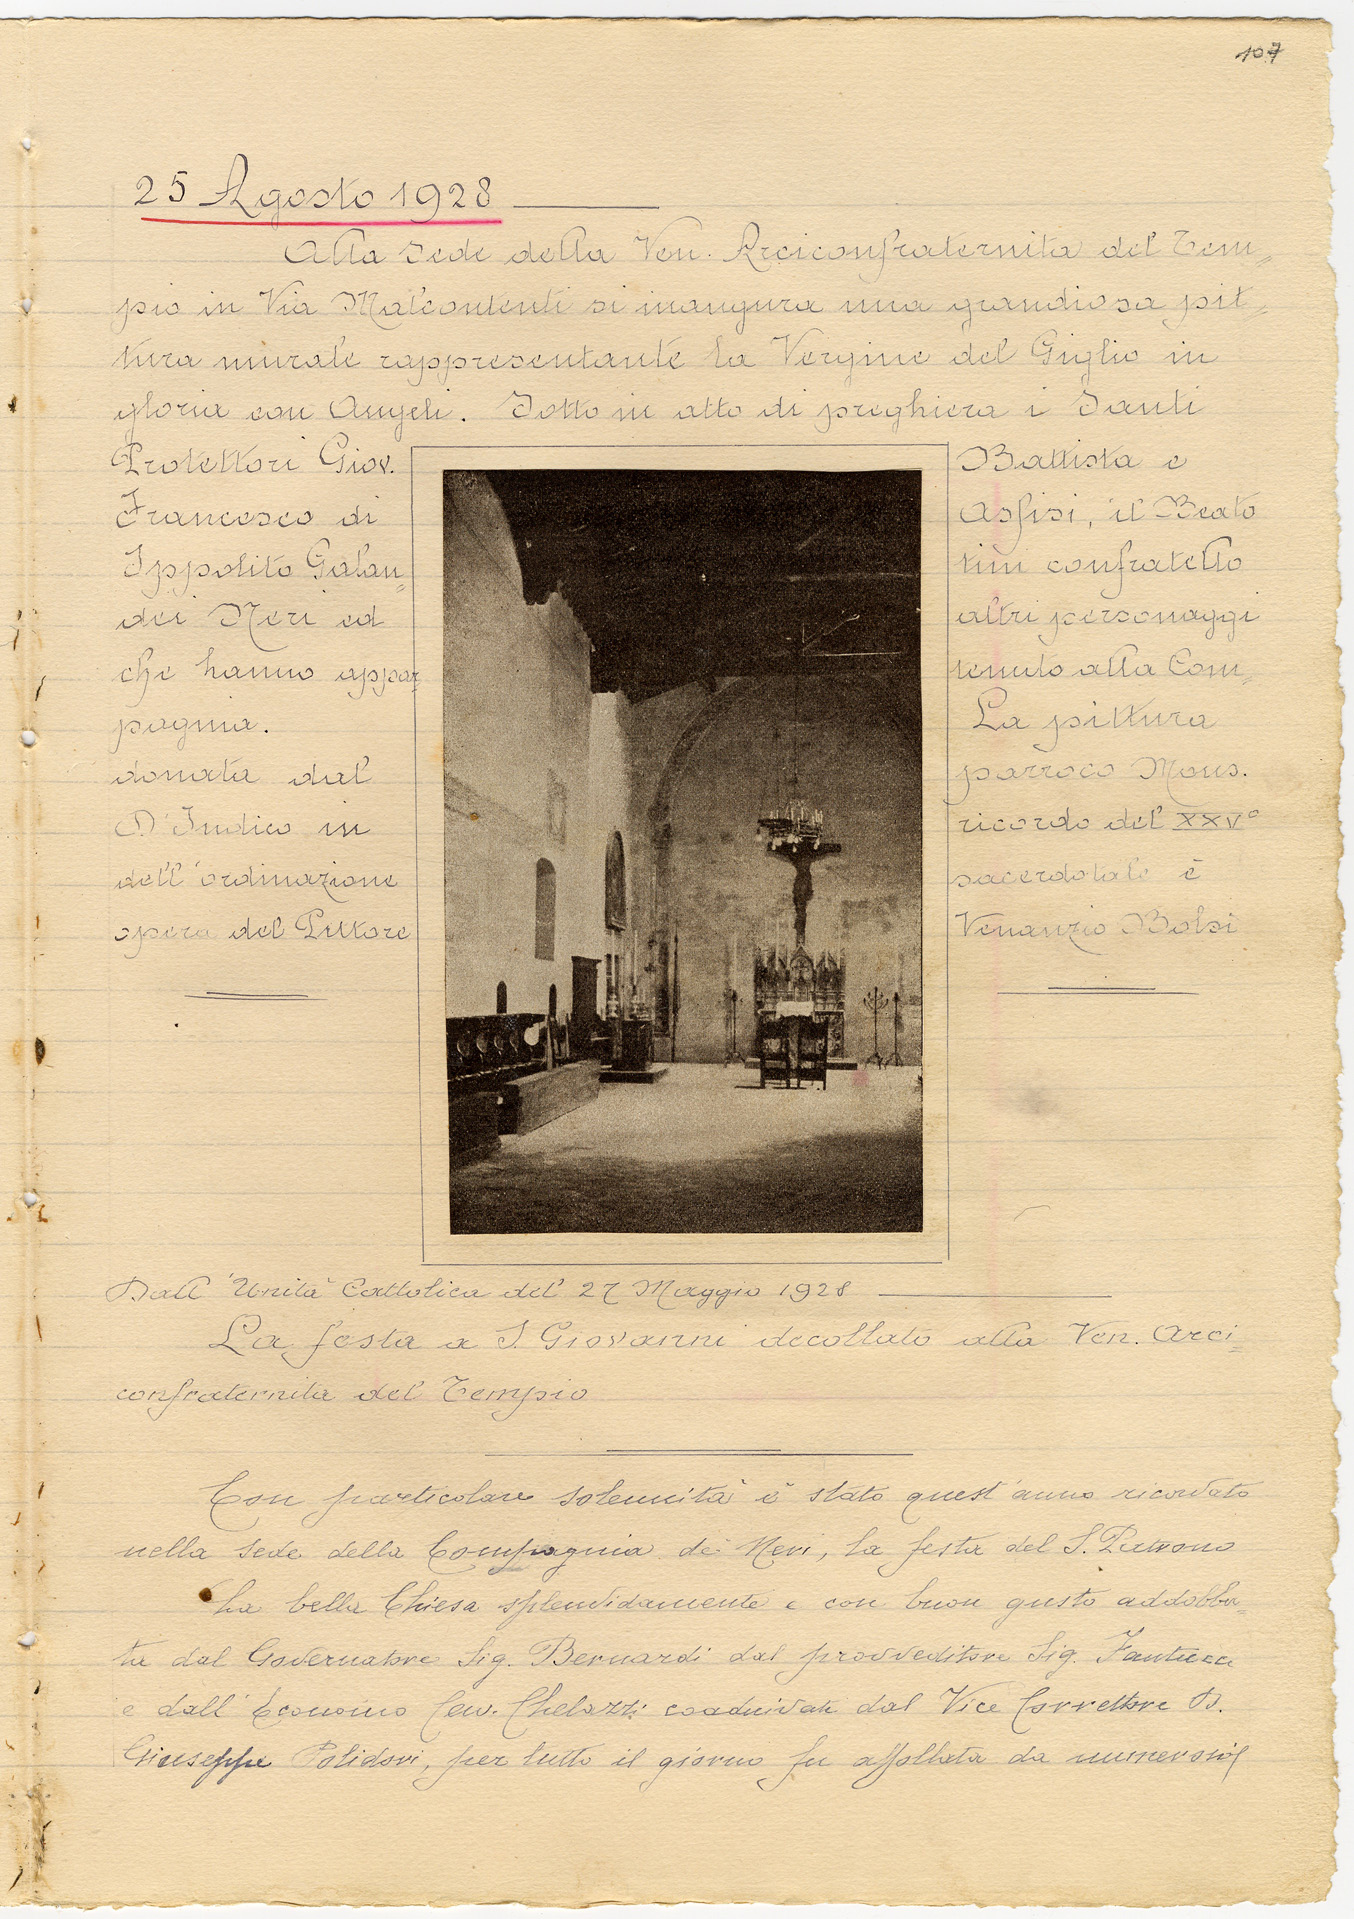 107
25 Agosto 1928
Alla Sede della Ven. Arciconfraternita del Tem=
pio in Via Malcontenti si inaugura una grandiosa pit=
tura murale rappresentante la Vergine del Giglio in
gloria con Angeli. Sotto in atto di preghiera i Santi
Protettori Giov. Battista e
Francesco di Assisi, il Beato
Ippolito Galan= tini confratello
dei Neri ed altri personaggi
che hanno appar= tenuto alla Com=
pagnia. La pittura
donata dal parroco Mons.
D'Indico in ricordo del XXV°
dell'ordinazione sacerdotale è
opera del Pittore Venanzio Bolsi
Dall'Unità Cattolica del 27 Maggio 1928
La festa a S. Giovanni decollato alla Ven. Arci=
confraternita del Tempio
Con particolare solennità è stato quest'anno ricordato
nella Sede della Compagnia dei Neri, la festa del S. Patrono
La bella Chiesa splendidamente e con buon gusto addobba=
ta dal Governatore Sig. Bernardi dal provveditore Sig.
e dall'Economo Cav. Chelazzi coadiuvati dal Vice Correttore D.
Giuseppe Polidori, per tutto il giorno fu affollata da numerosi